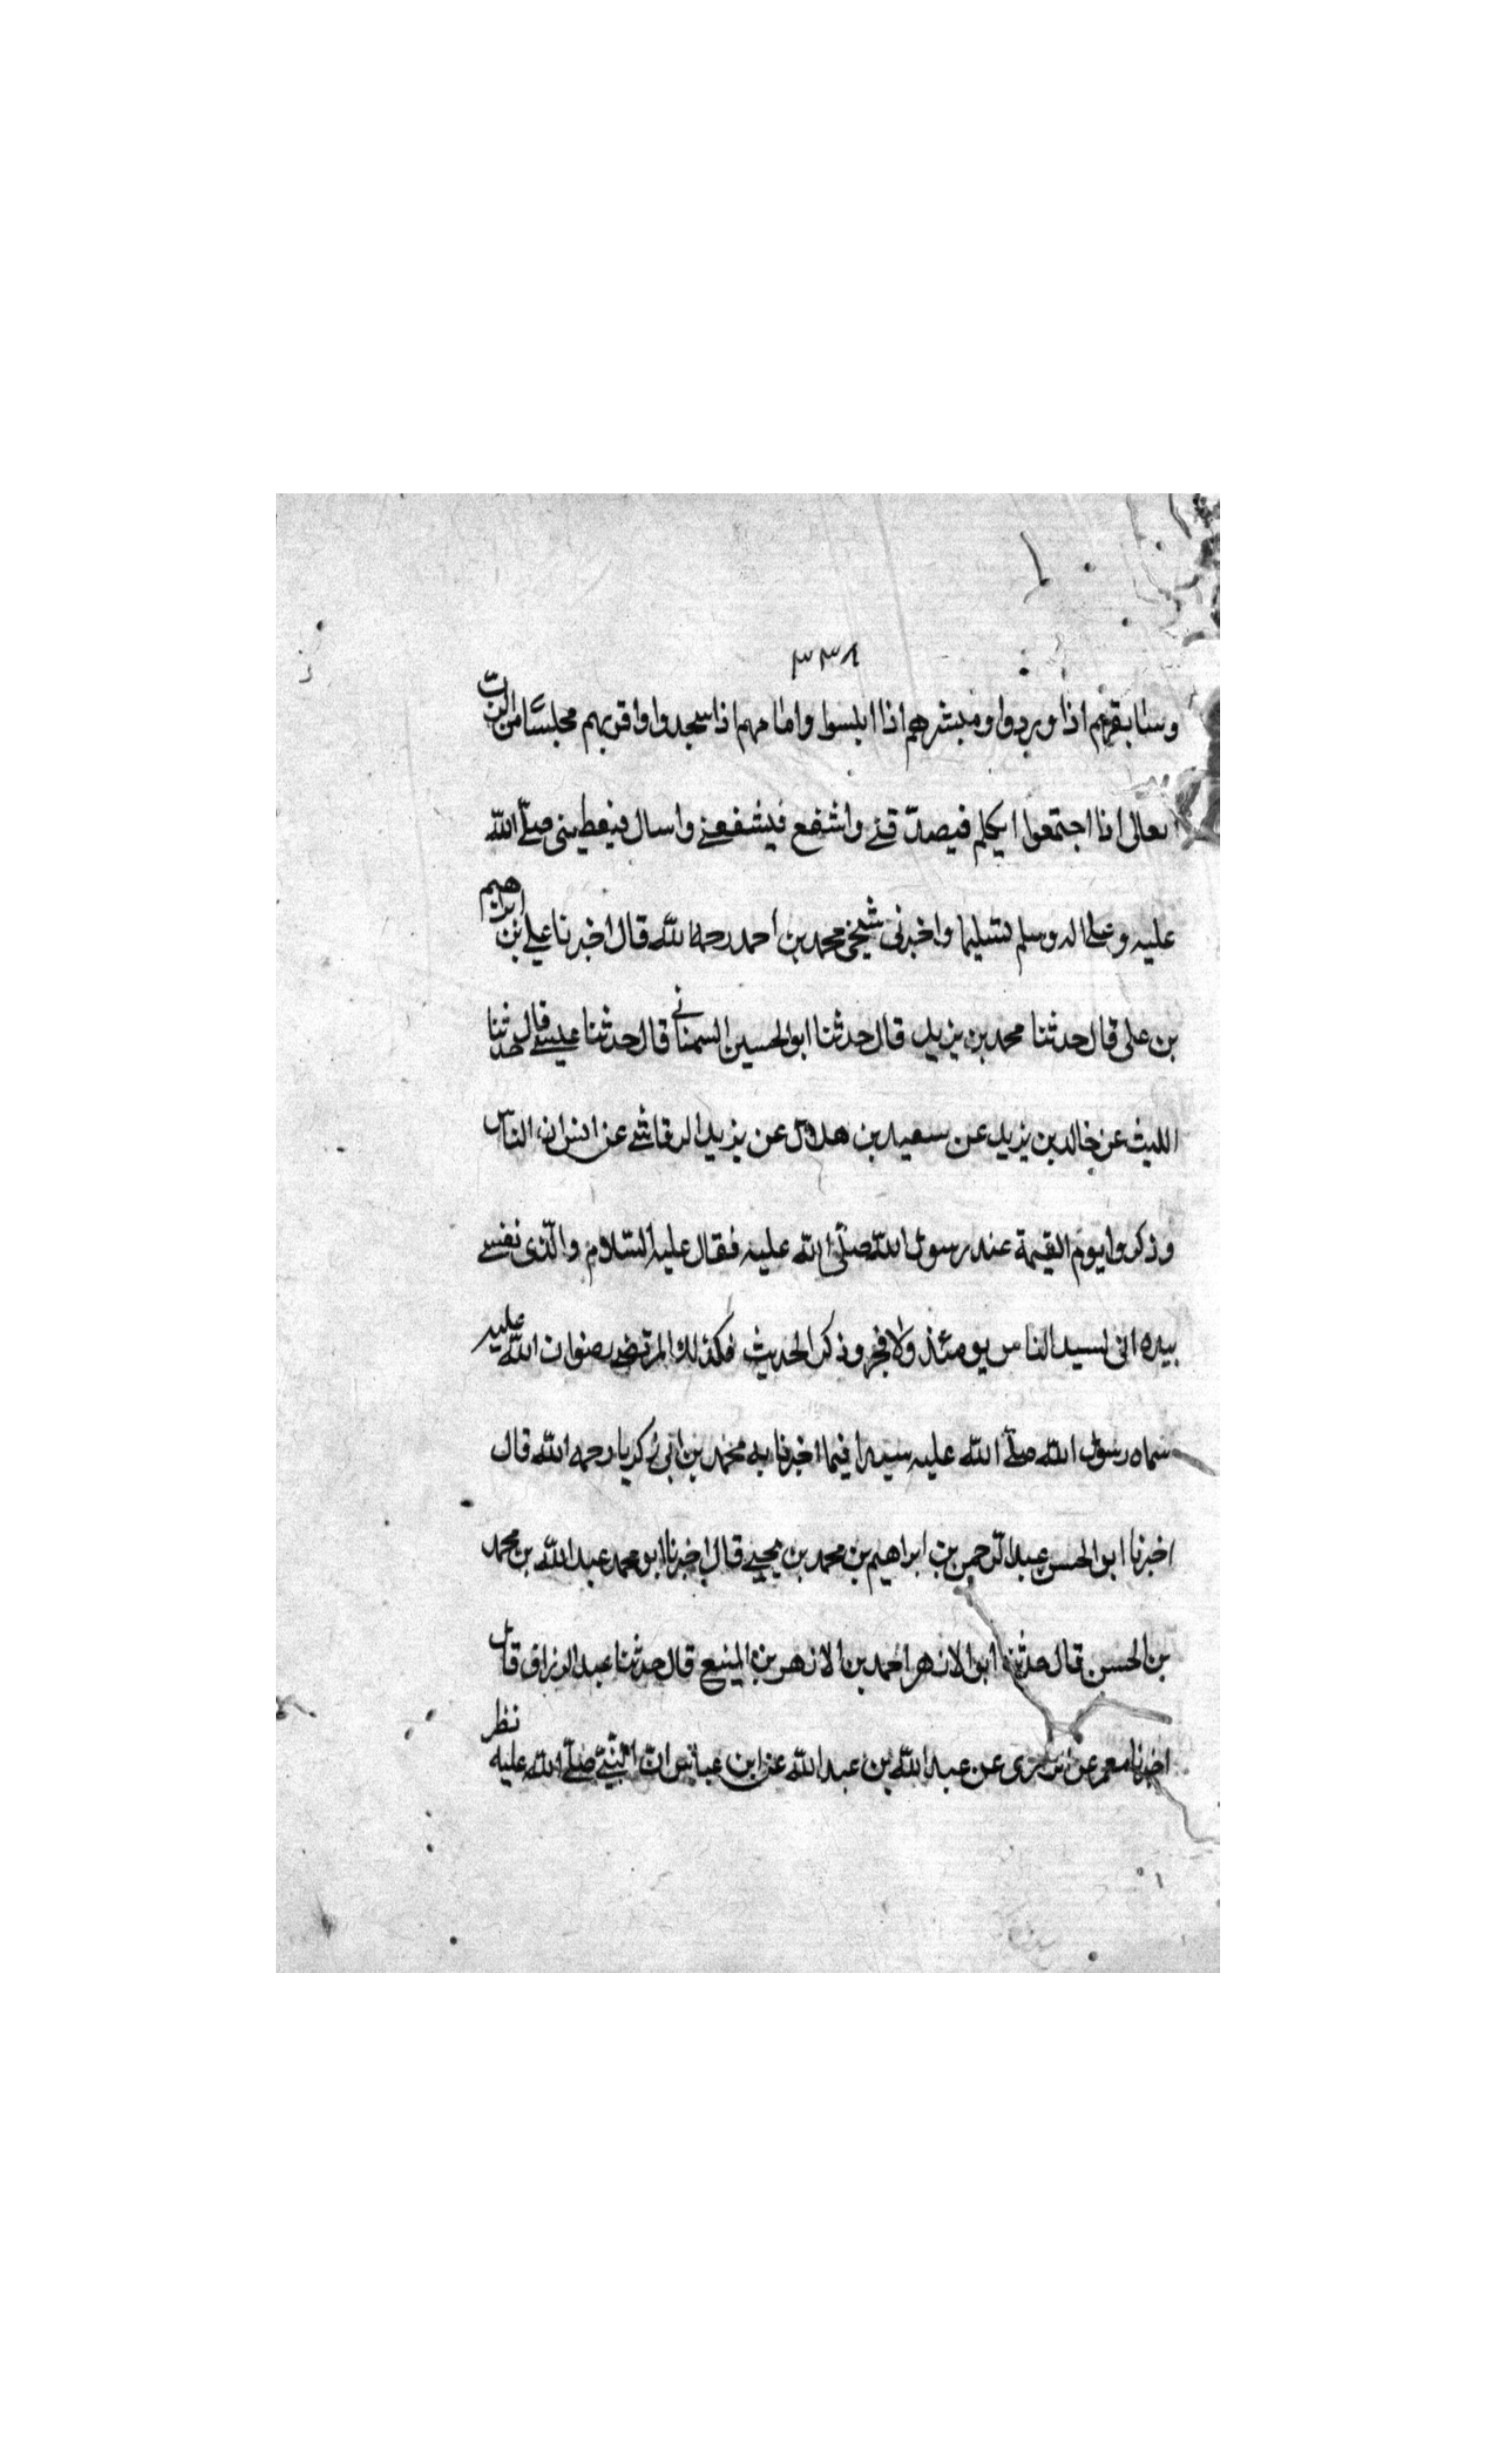 ٣٣٨
وسابقهم اذا وردوا ومبشرهم اذا ابلسوا وامامهم اذا سجدوا واقربهم مجلسًا من الربّ
تعالى اذا اجتمعوا اتكلم فيصدّقني واشفع فيشفعني واسال فيعطيني صلّى الله
عليه وعلى اله وسلم تسليما واخبرني شيخي محمد بن احمد رحمه الله قال اخبرنا علي بن ابراهيم
بن على قال حدثنا محمد بن يزيد قال حدثنا ابو الحسين السمناني قال حدثنا عيسى قال حدثنا
الليث عن خالد بن يزيد عن سعيد بن هلال عن يزيد الرقاشي عن انس ان الناس
وذكروا يوم القيمة عند رسول الله صلّى الله عليه فقال عليه السّلام والّذى نفسي
بيده انى لسيد الناس يومئذ ولا فخر وذكر الحديث فكذلك المرتضى رضوان الله عليه
سماه رسول الله صلّى الله عليه سيدا فيما اخبرنا به محمد بن ابي زكريا رحمه الله قال
اخبرنا ابو الحسن عبد الرّحمن بن ابراهيم بن محمد بن يحيى قال اخبرنا ابو محمد عبد الله بن محمد
بن الحسن قال حدثنا ابو الازهر احمد بن الازهر بن المنيع قال حدثنا عبد الرزاق قال
اخبرنا معمر عن الزهرى عن عبيد الله بن عبد الله عن ابن عباس انّ النّبيّ صلّى الله عليه نظر